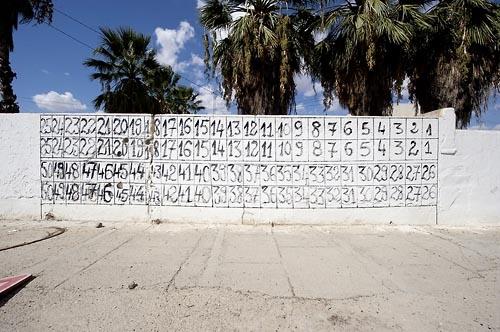 25 24 23 22 21 20 19 18 17 16 15 14 13 12 11 10 9 8 7 6 5 4 3 2 1
25 24 23 22 21 20 19 18 17 16 15 14 13 12 11 10 9 8 7 6 5 4 3 2 1
50 49 48 47 46 45 44 43 42 41 40 39 38 37 36 35 34 33 32 31 30 29 28 27 26
50 49 48 47 46 45 44 43 42 41 40 39 38 37 36 35 34 33 32 31 30 29 28 27 26